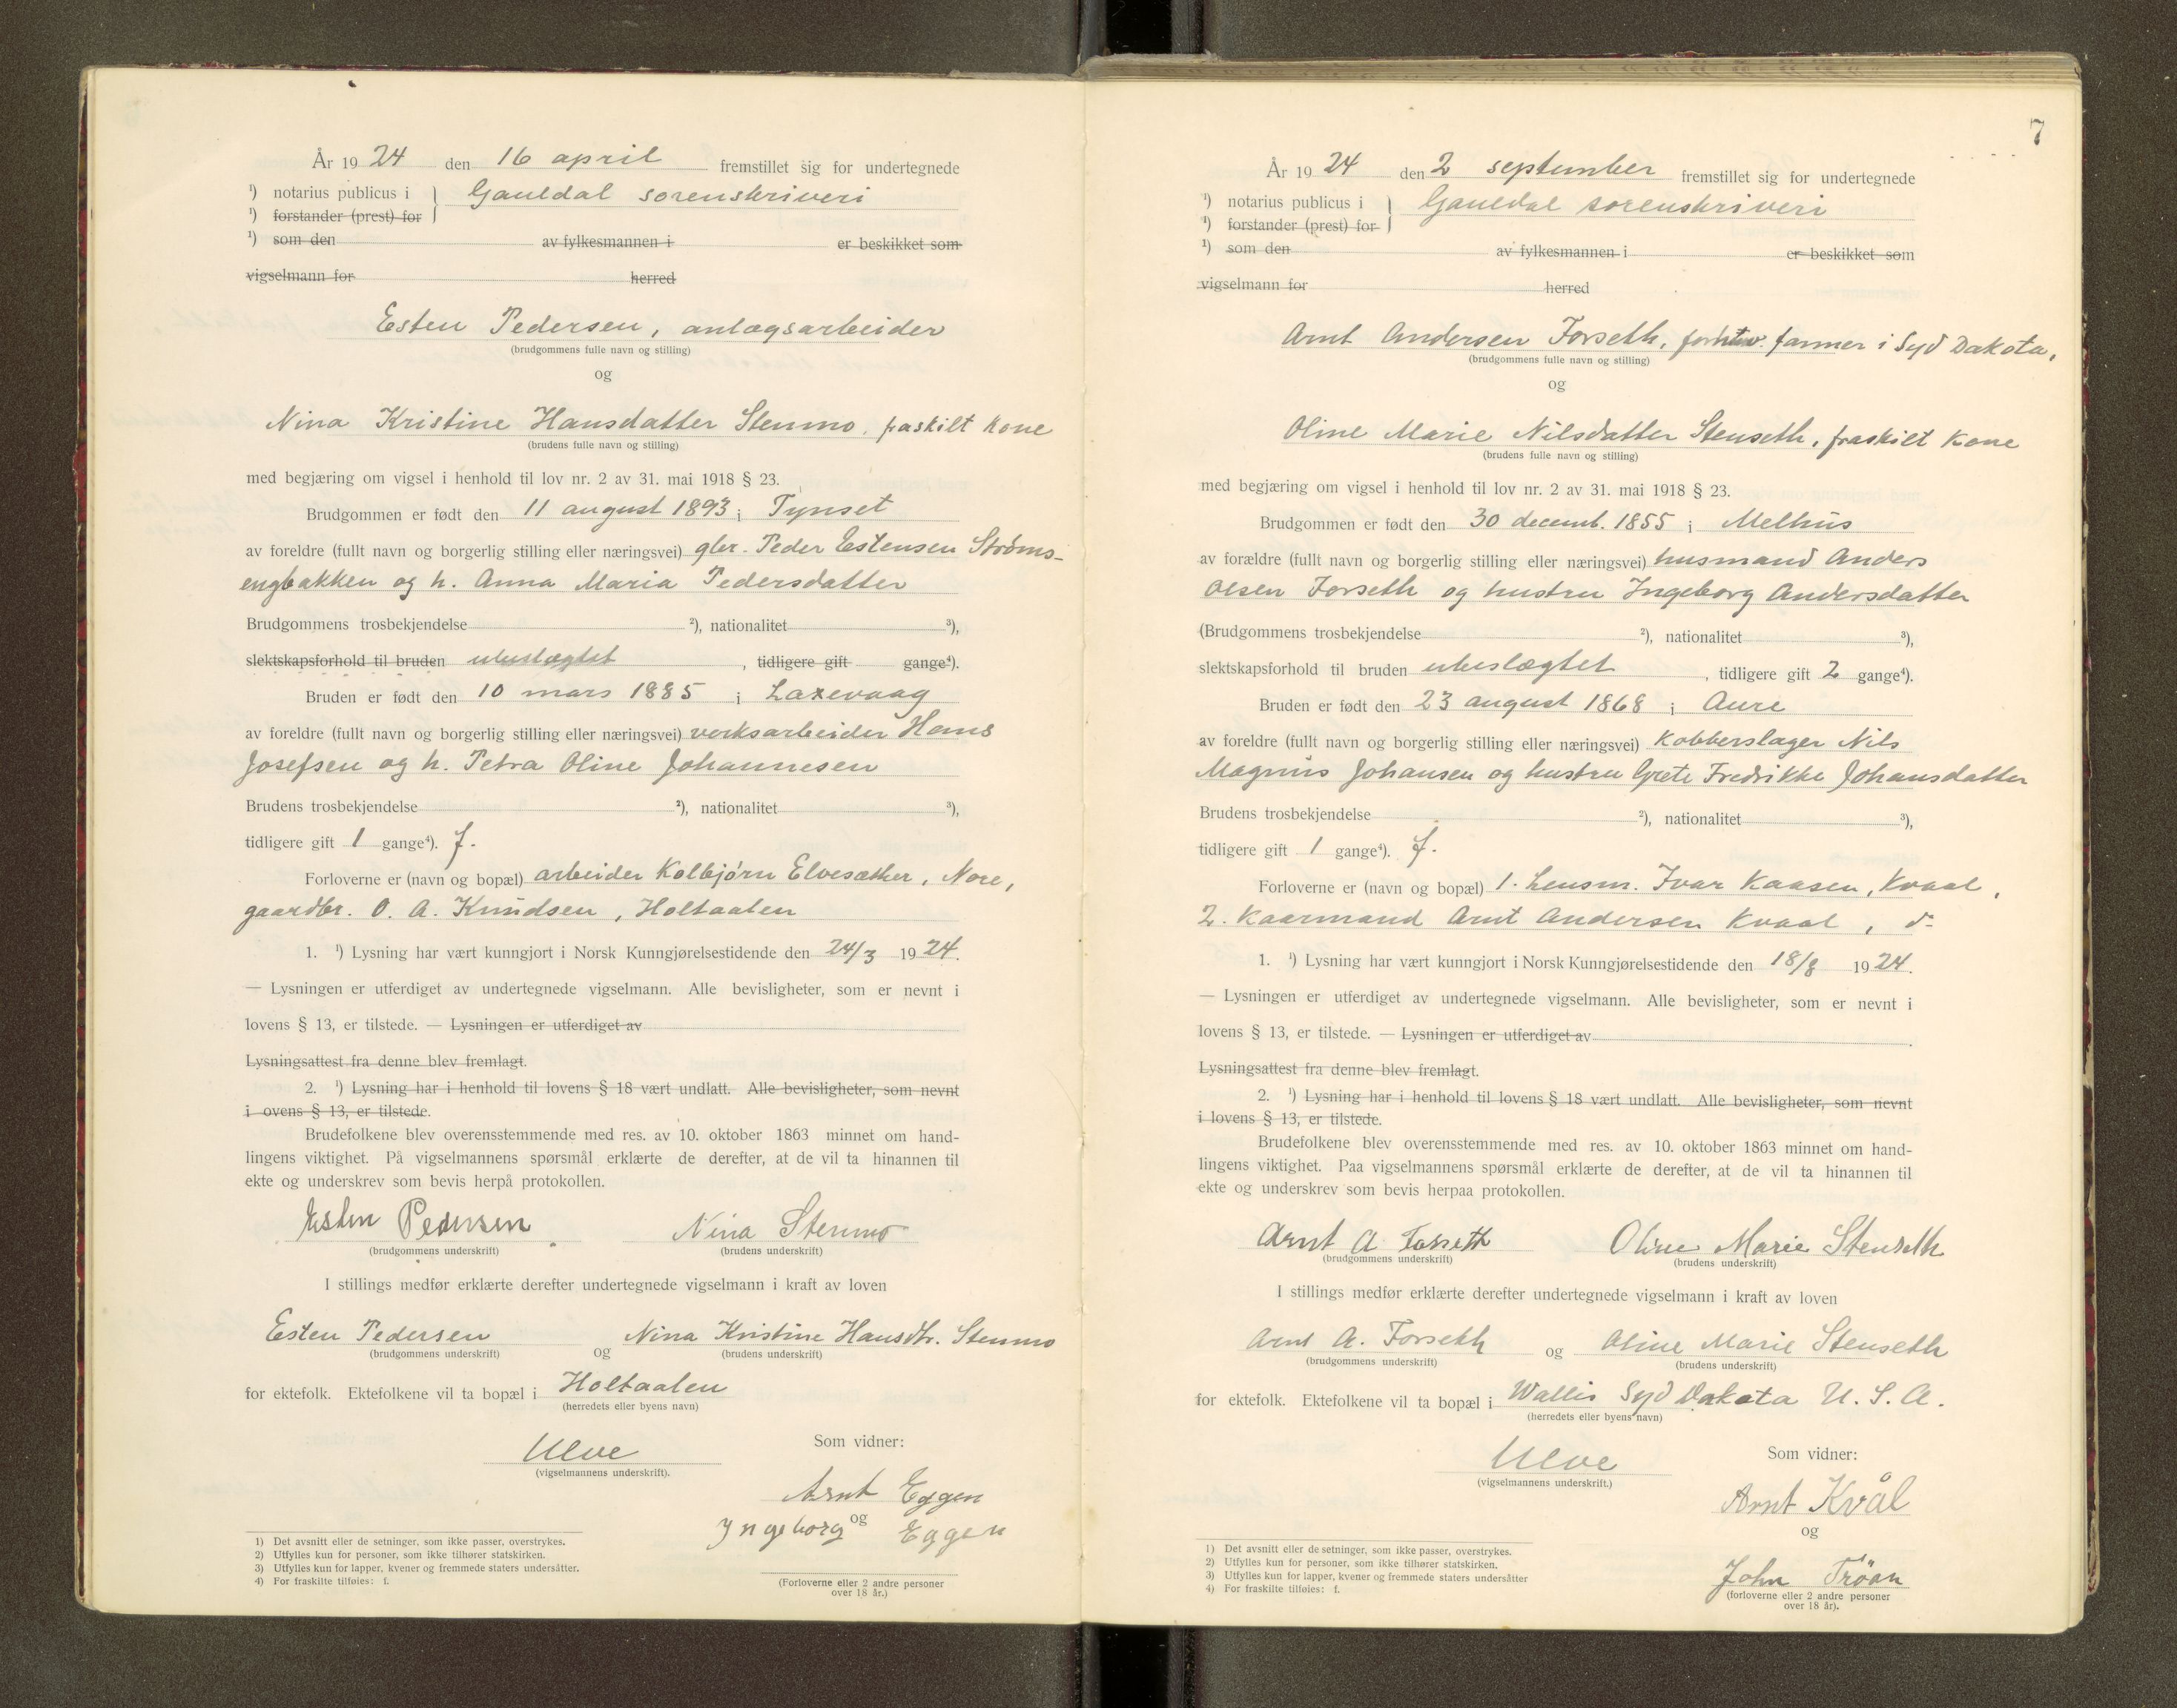 År 1924 den 16 april fremstillet sig for undertegnede
¹) notarius publicus i } Gauldal sorenskriveri
¹) forstander (prest) for
¹) som den av fylkesmannen i er beskikket som
vigselmann for herred
Esten Pedersen, anlægsarbeider
(brudgommens fulle navn og stilling)
og
Nina Kristine Hansdatter Stenmo, fraskilt kone
(brudens fulle navn og stilling)
med begjæring om vigsel i henhold til lov nr. 2 av 31. mai 1918 § 23.
Brudgommen er født den 11 august 1893 i Tynset
av foreldre (fullt navn og borgerlig stilling eller næringsvei) gbr. Peder Estensen Strøms-
engbakken og h. Anna Maria Pedersdatter
Brudgommens trosbekjendelse ²), nationalitet ³),
slektskapsforhold til bruden ubeslægtet, tidligere gift gange⁴).
Bruden er født den 10 mars 1885 i Laxevaag
av foreldre (fullt navn og borgerlig stilling eller næringsvei) verksarbeider Hans
Josefsen og h. Petra Oline Johannesen
Brudens trosbekjendelse ²), nationalitet ³),
tidligere gift 1 gange⁴). f.
Forloverne er (navn og bopæl) arbeider Kolbjørn Elvesæther, Nore,
gaardbr. O. A. Knudsen, Holtaalen
1. ¹) Lysning har vært kunngjort i Norsk Kunngjørelsestidende den 24/3 1924.
— Lysningen er utferdiget av undertegnede vigselmann. Alle bevisligheter, som er nevnt i
lovens § 13, er tilstede. — Lysningen er utferdiget av
Lysningsattest fra denne blev fremlagt.
2. ¹) Lysning har i henhold til lovens § 18 vært undlatt. Alle bevisligheter, som nevnt
i ovens § 13, er tilstede.
Brudefolkene blev overensstemmende med res. av 10. oktober 1863 minnet om hand-
lingens viktighet. På vigselmannens spørsmål erklærte de derefter, at de vil ta hinannen til
ekte og underskrev som bevis herpå protokollen.
Esten Pedersen Nina Stenmo
(brudgommens underskrift) (brudens underskrift)
I stillings medfør erklærte derefter undertegnede vigselmann i kraft av loven
Esten Pedersen og Nina Kristine Hansdtr. Stenmo
(brudgommens underskrift) (brudens underskrift)
for ektefolk. Ektefolkene vil ta bopæl i Holtaalen
(herredets eller byens navn)
Ulve
(vigselmannens underskrift).
Som vidner:
Arnt Eggen
og
Ingeborg Eggen
(Forloverne eller 2 andre personer
over 18 år.)
1) Det avsnitt eller de setninger, som ikke passer, overstrykes.
2) Utfylles kun for personer, som ikke tilhører statskirken.
3) Utfylles kun for lapper, kvener og fremmede staters undersåtter.
4) For fraskilte tilføies: f.
7
År 1924 den 2 september fremstillet sig for undertegnede
¹) notarius publicus i } Gauldal sorenskriveri
¹) forstander (prest) for
¹) som den av fylkesmannen i er beskikket som
vigselmann for herred
Arnt Andersen Forseth, farmer i Syd Dakota,
(brudgommens fulle navn og stilling)
og
Oline Marie Nilsdatter Stenseth, fraskilt kone
(brudens fulle navn og stilling)
med begjæring om vigsel i henhold til lov nr. 2 av 31. mai 1918 § 23.
Brudgommen er født den 30 decemb. 1855 i Melhus
av forældre (fullt navn og borgerlig stilling eller næringsvei) husmand Anders
Olsen Forseth og hustru Ingeborg Andersdatter
(Brudgommens trosbekjendelse ²), nationalitet ³),
slektskapsforhold til bruden ubeslægtet, tidligere gift 2 gange⁴).
Bruden er født den 23 august 1868 i Aure
av foreldre (fullt navn og borgerlig stilling eller næringsvei) kobberslager Nils
Magnus Johansen og hustru Grete Fredrikke Johansdatter
Brudens trosbekjendelse ²), nationalitet ³),
tidligere gift 1 gange⁴). f.
Forloverne er (navn og bopæl) 1. Lensm. Ivar Kaasen, Kvaal,
2. Kaarmand Arnt Andersen Kvaal, d-
1. ¹) Lysning har vært kunngjort i Norsk Kunngjørelsestidende den 18/8 1924.
— Lysningen er utferdiget av undertegnede vigselmann. Alle bevisligheter, som er nevnt i
lovens § 13, er tilstede. — Lysningen er utferdiget av .
Lysningsattest fra denne blev fremlagt.
2. ¹) Lysning har i henhold til lovens § 18 vært undlatt. Alle bevisligheter, som nevnt
i lovens § 13, er tilstede.
Brudefolkene blev overensstemmende med res. av 10. oktober 1863 minnet om hand-
lingens viktighet. Paa vigselmannens spørsmål erklærte de derefter, at de vil ta hinannen til
ekte og underskrev som bevis herpaa protokollen.
Arnt A Forseth Oline Marie Stenseth
(brudgommens underskrift) (brudens underskrift)
I stillings medfør erklærte derefter undertegnede vigselmann i kraft av loven
Arnt A. Forseth og Oline Marie Stenseth
(brudgommens underskrift) (brudens underskrift)
for ektefolk. Ektefolkene vil ta bopæl i Wallis Syd Dakota U. S. A.
(herredets eller byens navn)
Ulve
(vigselmannens underskrift.)
Som vidner:
Arnt Kvål
og
John Trøan
(forloverne eller 2 andre personer
over 18 år).
1) Det avsnitt eller de setninger, som ikke passer, overstrykes.
2) Utfylles kun for personer, som ikke tilhører statskirken.
3) Utfylles kun for lapper, kvener og fremmede staters undersåtter
4) For fraskilte tilføies: f.